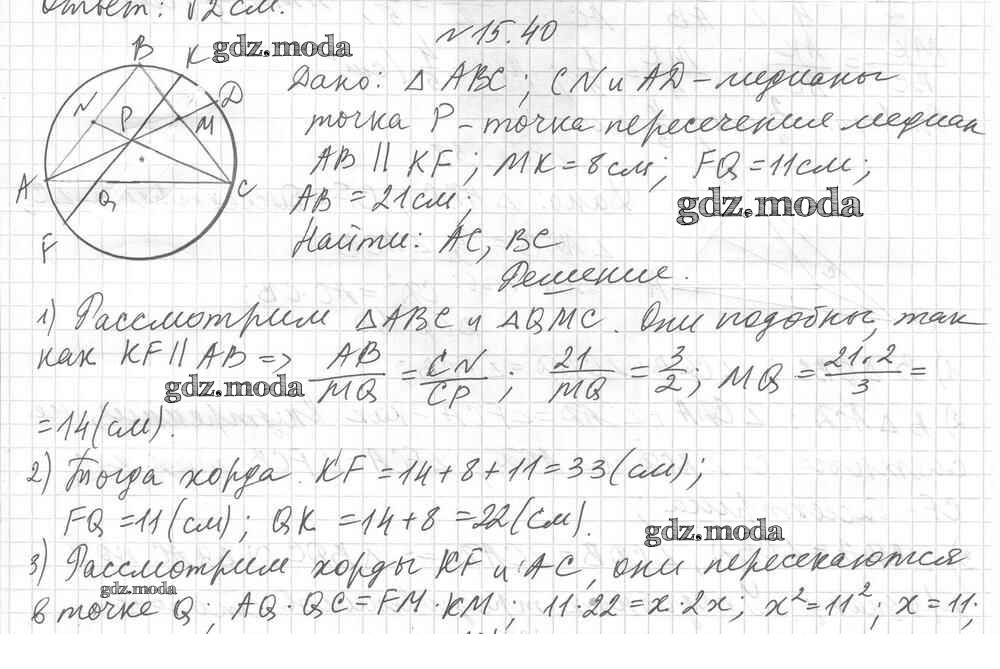 Ответ: √2 см.
№15.40
gdz.moda
B K
D
N P M
A Q C
F
Дано: △ ABC ; CN и AD – медианы
точка P – точка пересечения медиан
AB || KF ; MK = 8 см; FQ = 11 см;
gdz.moda
AB = 21 см;
Найти: AC, BC
Решение.
1) Рассмотрим △ABC и △QMC. Они подобны, так
как KF || AB => AB/MQ = CN/CP ; 21/MQ = 3/2 ; MQ = 21·2/3 =
gdz.moda
= 14 (см).
2) Тогда хорда KF = 14 + 8 + 11 = 33 (см);
FQ = 11 (см); QK = 14 + 8 = 22 (см).
gdz.moda
3) Рассмотрим хорды KF и AC, они пересекаются
gdz.moda
в точке Q; AQ · QC = FM · KM ; 11·22 = x · 2x ; x² = 11² ; x = 11;